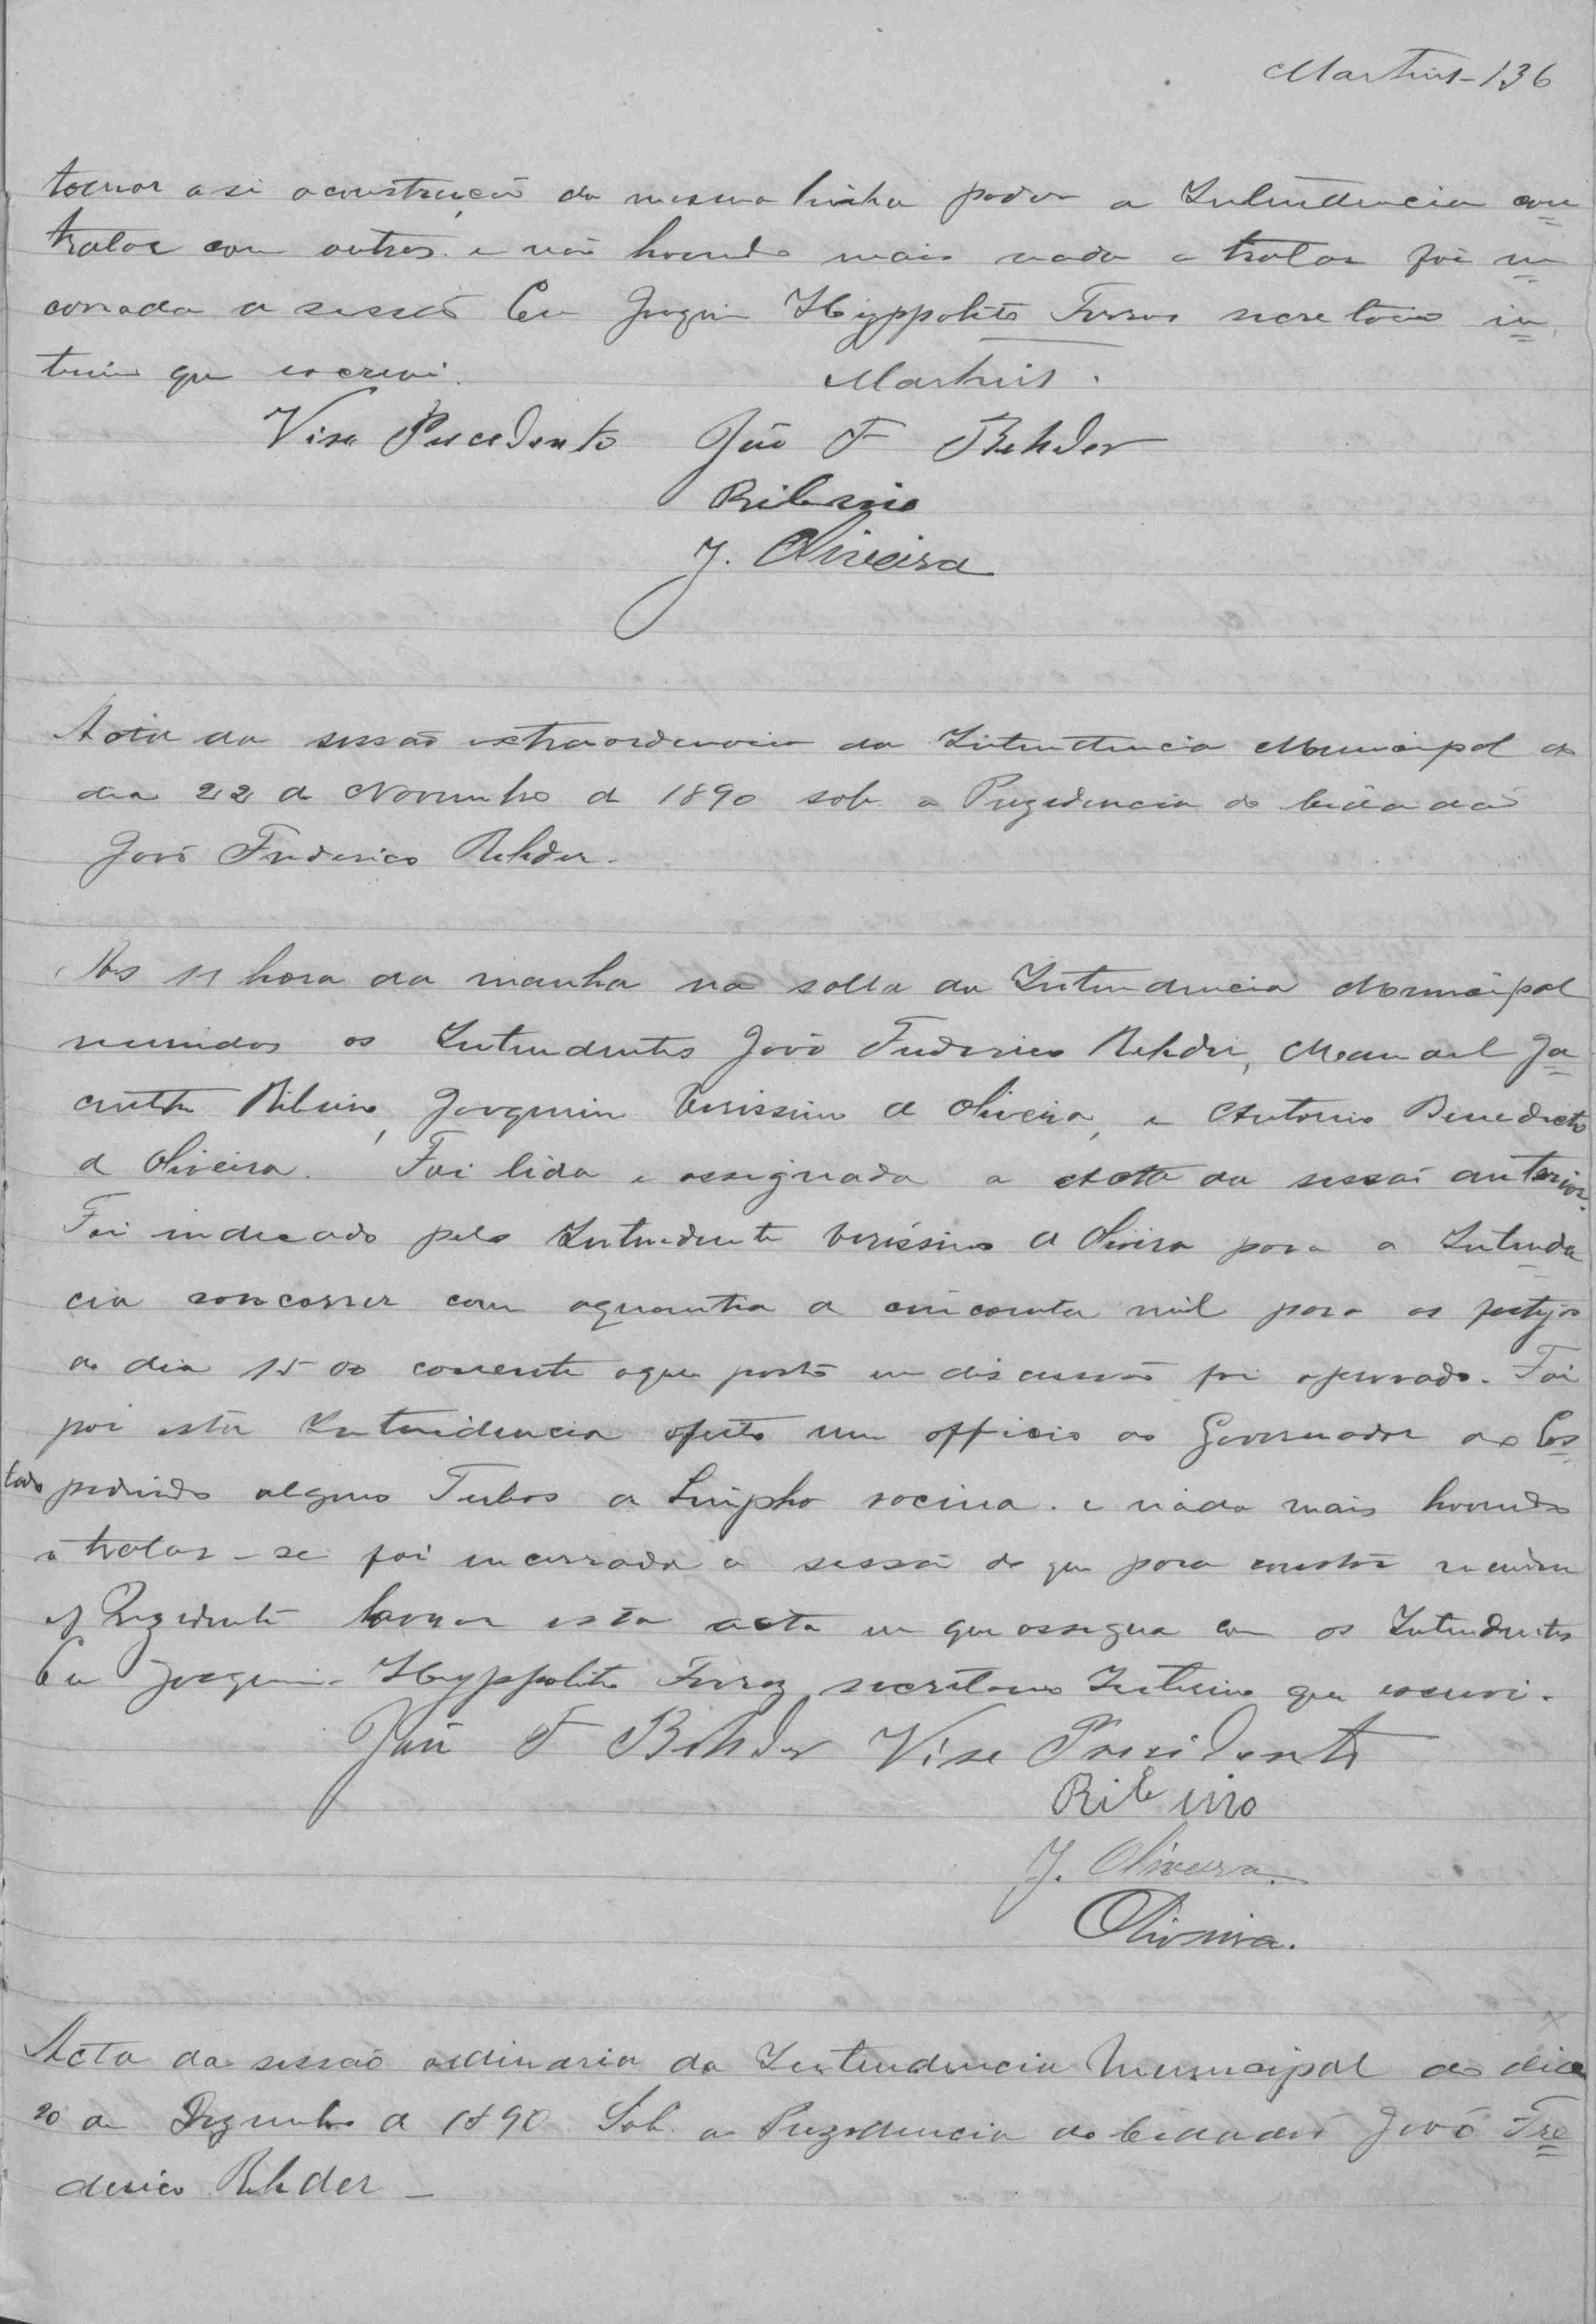 Martins-136
tomar a si aconstrucção da mesma linha poder a Intendencia con
tratar com outros. e não havendo mais nada a tratar foi in
cerrada a sessão Eu Joaquim Hyppolito Ferraz secretario in
terino que escrevi.
Martins.
Vise Precedente João F Rehder
Ribeiro
J. Oliveira
Acta da sessão extraordenaria da Intendencia Municipal do
dia 22 de Novembro de 1890 sob a Prezidencia do Cidadão
João Frederico Rehder.
As 11 hora da manha na salla da Intendencia Municipal
reunidos os Intendentes João Frederico Rehder, Manoel Ja
cintho Ribeiro, Joaquim Verissimo de Oliveira, e Antonio Benedicto
de Oliveira. Foi lida e assignada a Acta da sessão anterior.
Foi indicado pelo Intendente Verissimo de Oliveira para a Intenden
cia concorrer com aquantia de cincoenta mil para os festejos
do dia 15 do corrente oque posto em discussão foi aprovado. Foi
por esta Intendencia feito um officio ao Governador do Es
tado pedindo alguns Tubos de Limpha vacina. e nada mais havendo
a tratar-se foi encerrada a sessão do que para constar
o Prezidente lavrar esta acta em que assigna com os Intendentes
Eu Joaquim Hyppolito Ferraz secretario Interino que escrevi.
João F Rehder Vise Presidente
Ribeiro
J. Oliveira.
Oliveira.
Acta da sessão ordinaria da Intendencia Municipal do dia
20 de Dezembro de 1890 Sob. a Prezidencia do Cidadão João Fre
derico Rehder -